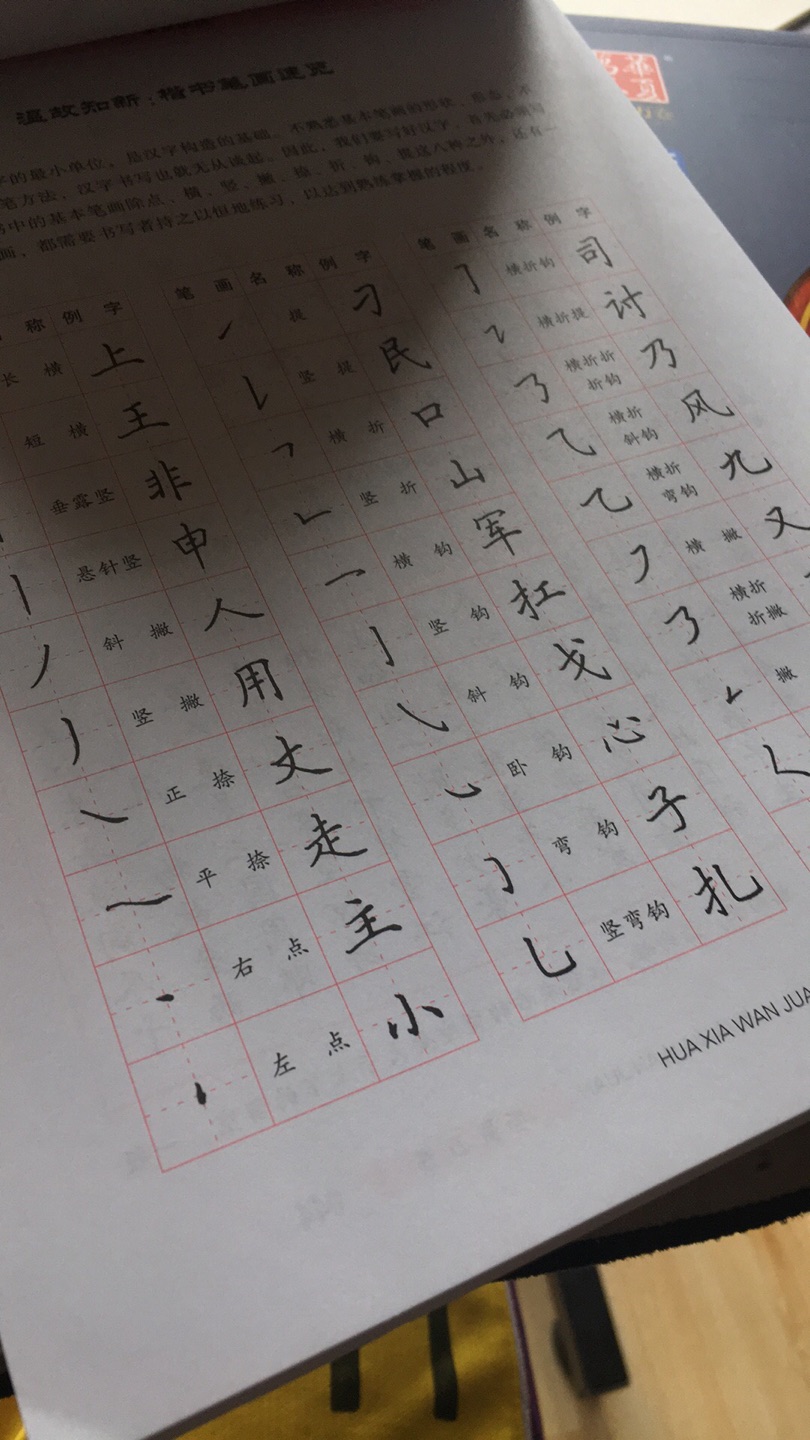 温故知新：楷书笔画速览
字的最小单位，是汉字构造的基础。不熟悉基本笔画的形状、形态、不
笔方法，汉字书写也就无从谈起。因此，我们要写好汉字，首先必须写
书中的基本笔画除点、横、竖、撇、捺、折、钩、提这八种之外，还有一
画，都需要书写者持之以恒地练习，以达到熟练掌握的程度。
称 例 字
长 横 上
短 横 王
垂露竖 非
悬针竖 申
斜 撇 人
竖 撇 用
正 捺 丈
平 捺 走
右 点 主
左 点 小
笔 画 名 称 例 字
提 刁
竖 提 民
横 折 口
竖 折 山
横 钩 军
竖 钩 扛
斜 钩 戈
卧 钩 心
弯 钩 子
竖弯钩 扎
笔 画 名 称 例 字
横折钩 司
横折提 讨
横折折
折钩 乃
横折
斜钩 风
横折
弯钩 九
横 撇 又
横折
折撇
撇
HUA XIA WAN JUA